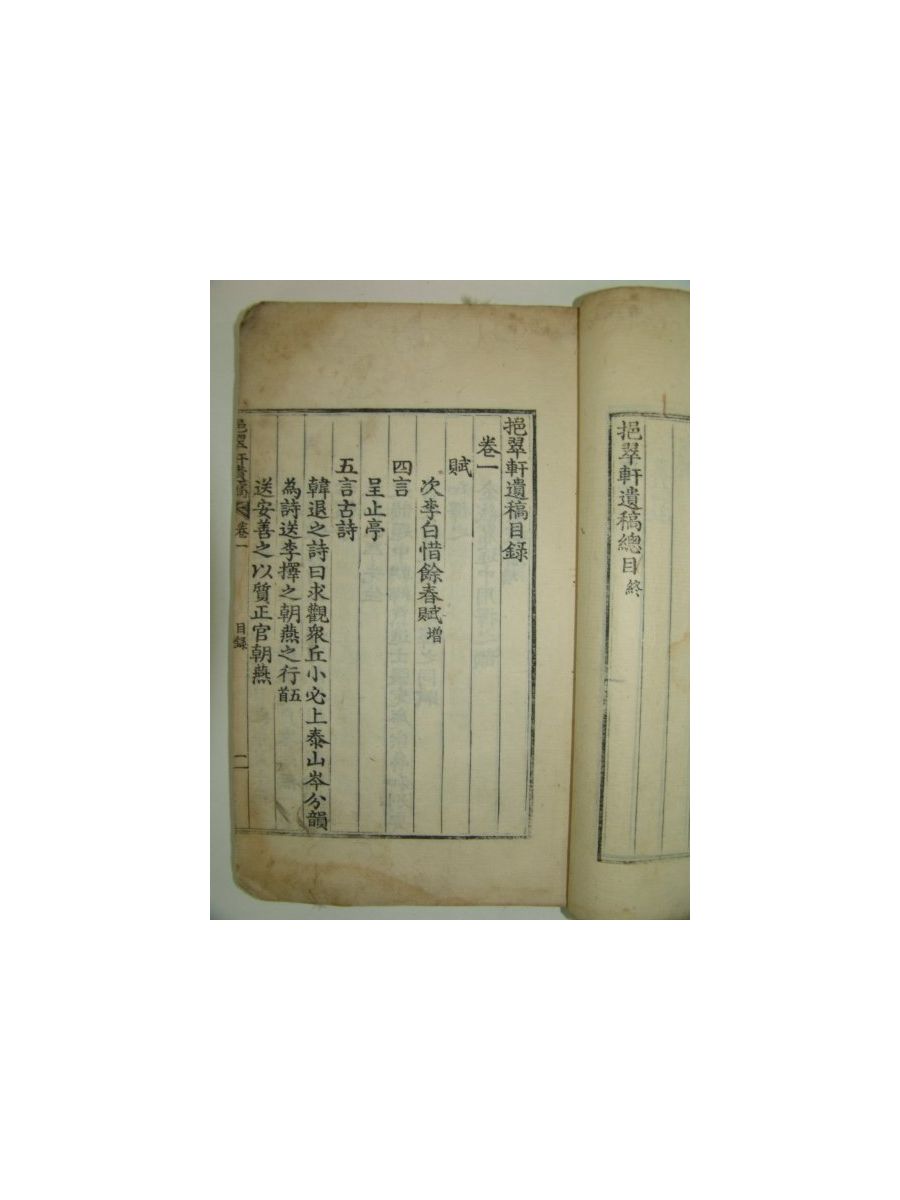 挹翠軒遺稿總目終
挹翠軒遺稿目錄
卷一
賦
次李白惜餘春賦增
四言
呈止亭
五言古詩
韓退之詩曰求觀衆丘小必上泰山岑分韻
為詩送李擇之朝燕之行五首
送安善之以質正官朝燕
挹翠軒遺稿 卷一 目錄 一